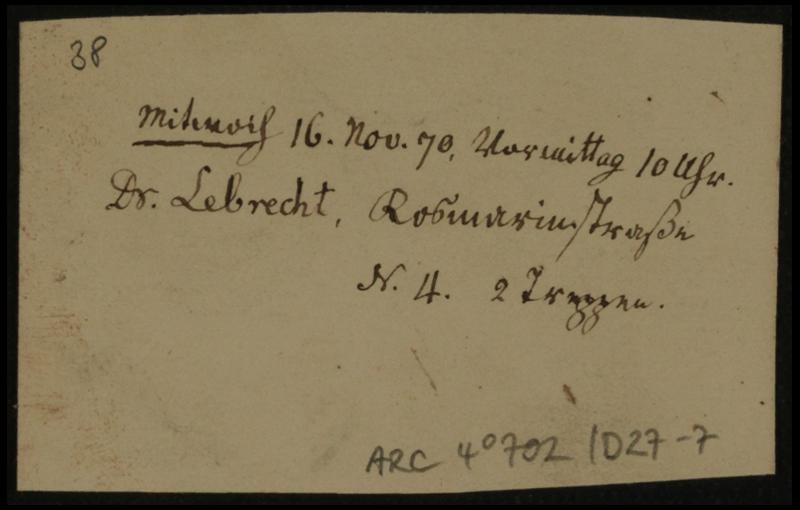 38
Mittwoch 16. Nov. 70, Vormittag 10 Uhr.
Dr. Lebrecht, Rosmarinstraße
N. 4. 2 Treppen.
ARC 4° 792 / D27-7